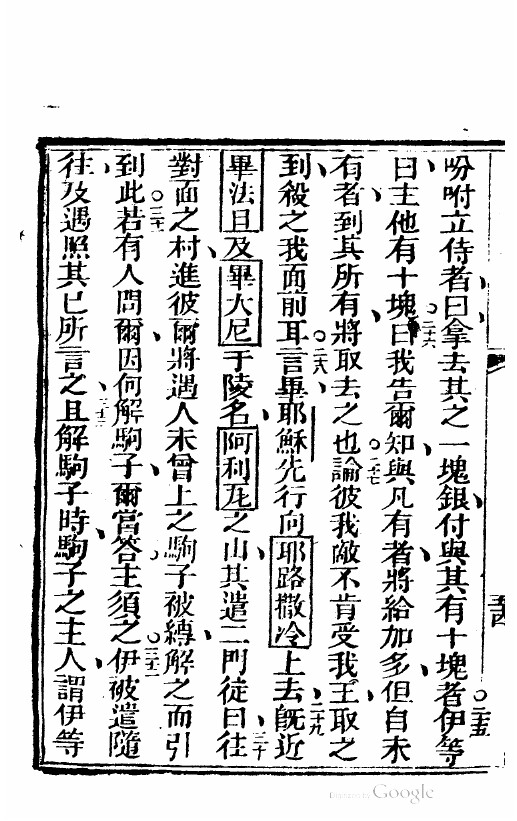 吩咐立侍者曰拿去其之一塊銀付與其有十塊者○二十五伊等
曰主他有十塊○二十六曰我告爾知與凡有者將給加多但自未
有者到其所有將取去之也○二十七論彼我敵不肯受我王取之
到殺之我面前耳○二十八言畢耶穌先行向耶路撒冷上去○二十九旣近
畢法且及畢大尼于陵名阿利瓦之山其遣二門徒曰○三十往
對面之村進彼爾將遇人未曾上之駒子被縛解之而引
到此○三十一若有人問爾因何解駒子爾當答主須之○三十二伊被遣隨
往及遇照其已所言之○三十三且解駒子時駒子之主人謂伊等
五十四
Digitized by Google